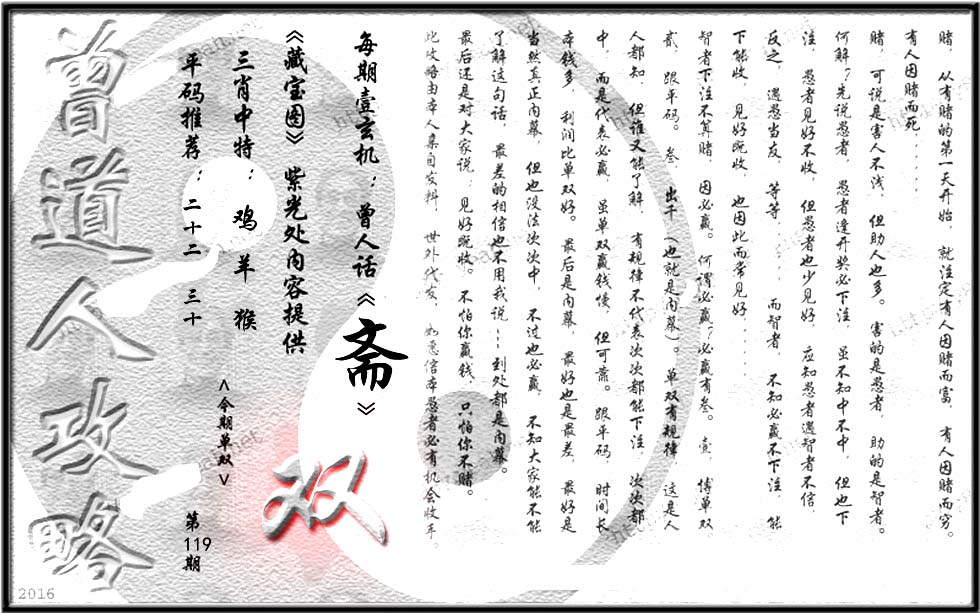 赌，从有赌的第一天开始，就注定有人因赌而富，有人因赌而穷。
有人因赌而死......
赌，可说是害人不浅，但助人也多。害的是愚者，助的是智者。
何解？先说愚者，愚者逢开奖必下注，虽不知中不中，但也下
注，愚者见好不收，但愚者也少见好，应知愚者遇智者不信，
反之，遇愚当友，等等......而智者，不知必赢不下注，能
下能收，见好既收，也因此而常见好......
智者下注不算赌，因必赢。何谓必赢？必赢有叁。壹，博单双，
贰，跟平码。叁，出千（也就是内幕）。单双有规律，这是人
人都知，但谁又能了解，有规律不代表次次都能下注，次次都
中，而是代表必赢，虽单双赢钱慢，但可靠。跟平码，时间长，
本钱多，利润比单双好。最后是内幕，最好也是最差，最好是
当然真正内幕，但也没法次次中，不过也必赢，不知大家能不能
了解这句话，最差的相信也不用我说...到处都是内幕。
最后还是对大家说：见好既收。不怕你赢钱，只怕你不赌。
此攻略由本人集自发料，世外代友，如愿信本愚者必有机会收丰。
每期壹玄机：曾人话《斋》
《藏宝图》紫光处内容提供
三肖中特：鸡羊猴
平码推荐：二十二 三十
<今期单双>
双
第119期
曾道人攻略
2016